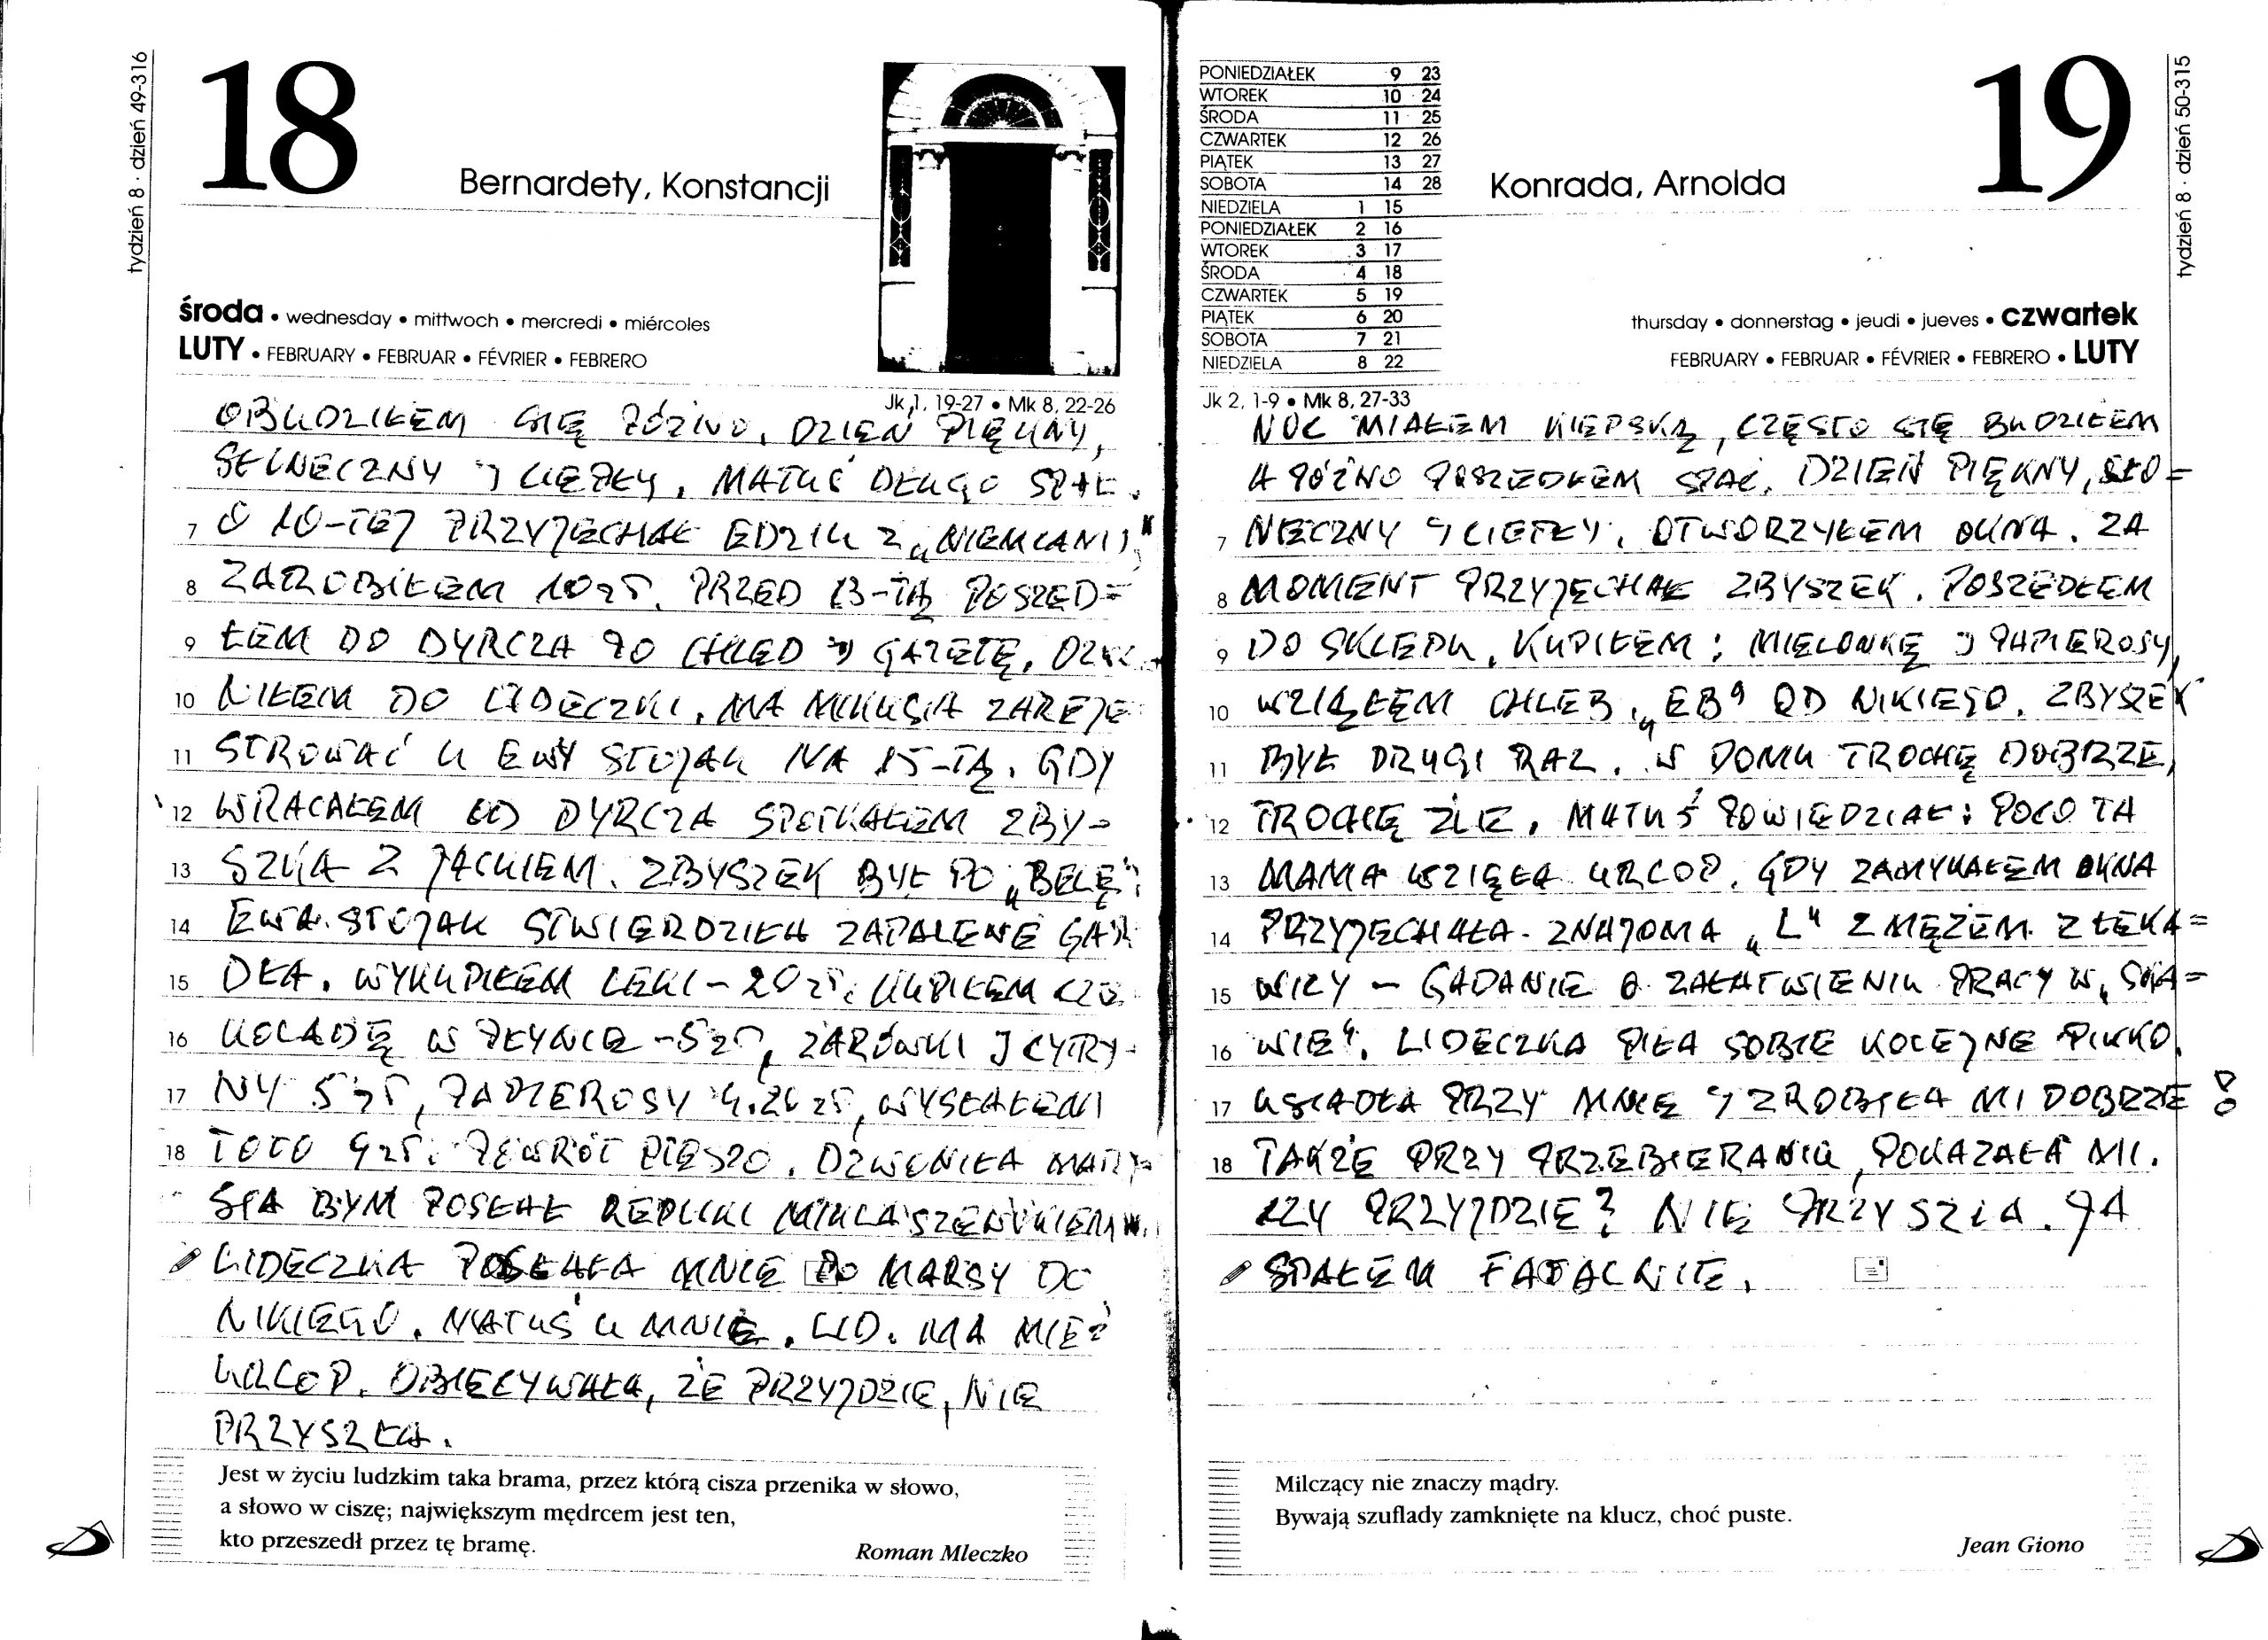 tydzień 8 · dzień 49-316
18
Bernardety, Konstancji
środa • wednesday • mittwoch • mercredi • miércoles
LUTY • FEBRUARY • FEBRUAR • FÉVRIER • FEBRERO
Jk 1, 19-27 • Mk 8, 22-26
OBUDZIŁEM SIĘ PÓŹNO. DZIEŃ PIĘKNY,
SŁONECZNY I CIEPŁY. MATUŚ DŁUGO SPAŁ.
7 O 10-TEJ PRZYJECHAŁ EDZIU Z „NIEMCAMI"
8 ZAROBIŁEM 10 zł. PRZED 13-TĄ POSZED=
9 ŁEM DO DYRCZA PO CHLEB I GAZETĘ. DZWO
10 NIŁEM DO LIDECZKI. MA MIKUSIA ZAREJE
11 STROWAĆ U EWY STOJAK NA 15-TĄ. GDY
12 WRACAŁEM OD DYRCZA SPOTKAŁEM ZBY-
13 SZKA Z JACKIEM. ZBYSZEK BYŁ PO „BELĘ".
14 EWA STOJAK STWIERDZIŁA ZAPALENE GAR
15 DŁA. WYKUPIŁEM LEKI - 20 zł. KUPIŁEM CZE
16 KOLADĘ W PŁYNIE - 5 zł, ŻARÓWKI I CYTRY-
17 NY 5 zł, PAPIEROSY 4.20 zł, WYSŁAŁEM
18 TOTO 4 zł. POWRÓT PIESZO. DZWONIŁA MARY-
SIA BYM POSŁAŁ REPLIKI
LIDECZKA POSŁAŁA MNIE PO MARSY DO
NIKIEGO. MATUŚ U MNIE. LID. MA MIEĆ
URLOP. OBIECYWAŁA, ŻE PRZYJDZIE, NIE
PRZYSZŁA.
Jest w życiu ludzkim taka brama, przez którą cisza przenika w słowo,
a słowo w ciszę; największym mędrcem jest ten,
kto przeszedł przez tę bramę.
Roman Mleczko
PONIEDZIAŁEK 9 23
WTOREK 10 24
ŚRODA 11 25
CZWARTEK 12 26
PIĄTEK 13 27
SOBOTA 14 28
NIEDZIELA 1 15
PONIEDZIAŁEK 2 16
WTOREK 3 17
ŚRODA 4 18
CZWARTEK 5 19
PIĄTEK 6 20
SOBOTA 7 21
NIEDZIELA 8 22
Konrada, Arnolda
19
tydzień 8 · dzień 50-315
thursday • donnerstag • jeudi • jueves • czwartek
FEBRUARY • FEBRUAR • FÉVRIER • FEBRERO • LUTY
Jk 2, 1-9 • Mk 8, 27-33
NOC MIAŁEM KIEPSKĄ, CZĘSTO SIĘ BUDZIŁEM
A PÓŹNO POSZEDŁEM SPAĆ. DZIEŃ PIĘKNY, SŁO=
7 NECZNY I CIEPŁY. OTWORZYŁEM OKNA. ZA
8 MOMENT PRZYJECHAŁ ZBYSZEK. POSZEDŁEM
9 DO SKLEPU. KUPIŁEM: MIELONKĘ I PAPIEROSY,
10 WZIĄŁĘM CHLEB „EB" OD NIKIEGO. ZBYSZEK
11 BYŁ DRUGI RAZ. W DOMU TROCHĘ DOBRZE,
12 TROCHĘ ŹLE. MATUŚ POWIEDZIAŁ: POCO TA
13 MAMA WZIĘŁA URLOP. GDY ZAMYKAŁEM OKNA
14 PRZYJECHAŁA ZNAJOMA „L" Z MĘŻEM Z ŁĘKA=
15 WICY - GADANIE O ZAŁATWIENIU PRACY W „SKA=
16 WIE". LIDECZKA PIŁA SOBIE KOLEJNE PIWKO.
17 USIADŁA PRZY MNIE I ZROBIŁA MI DOBRZE!
18 TAKŻE PRZY PRZEBIERANIU, POKAZAŁA MI.
CZY PRZYJDZIE? NIE PRZYSZŁA. JA
SPAŁEM FATALNIE.
Milczący nie znaczy mądry.
Bywają szuflady zamknięte na klucz, choć puste.
Jean Giono